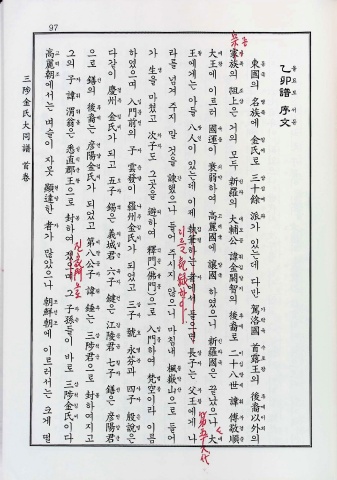 97
乙卯譜 序文
東國의 名族에 金氏로 三十餘 派가 있는데 다만 駕洛國 首露王의 後裔 以外의
族의 祖上은 거의 모두 新羅의 大輔公 諱 金閼智의 後裔로 二十八世 諱 傅 敬順
大王에 이르러 國運이 衰弱하여 高麗國에 讓 하였으니 新羅國은 끝났으나 大
王에게는 아들 八人이 있는데 이제 執筆하는 者에서 들으면 長子는 父王에게 나
라를 넘겨 주지 말 것을 諫했으나 들어 주시지 않으니 마침내 楓嶽山으로 들어
가 生을 마쳤고 次子도 그곳을 避하여 釋門(佛門)으로 入門하여 梵空이라 이름
하였으며 入門前의 子 雲發이 羅州金氏가 되었고 三子 號 永芬과 四子 殷說은
다같이 慶州 金氏가 되고 五子 錫은 義城君 六子 鍵은 江陵君 七子 鐥은 彦陽君
으로 鐥의 後裔는 彦陽金氏가 되었고 第八公子 諱 錘는 三陟君으로 封하여지고
그의 子 諱 渭翁은 悉直郡王으로 封하여졌으며 그 子孫들이 바로 三陟金氏이다
高麗朝에서는 벼슬이 자못 顯達한 者가 많았으나 朝鮮朝에 이르러서는 크게 떨
三陟金氏大同譜 首卷